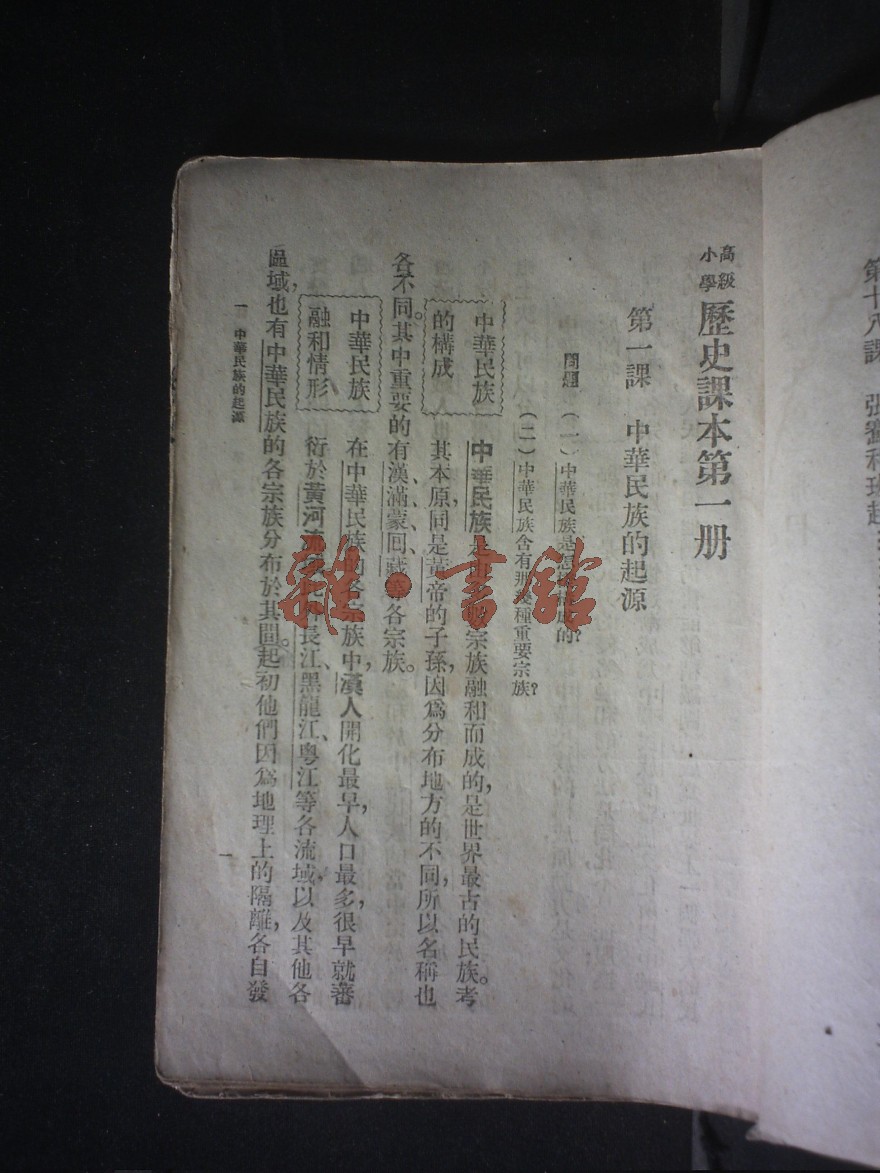 高級小學 歷史課本第一册
第一課 中華民族的起源
問題 (一)中華民族是怎樣構成的?
(二)中華民族含有那幾種重要宗族?
中華民族的構成
中華民族是由 宗族融和而成的,是世界最古的民族。考
其本原,同是黃帝的子孫,因爲分布地方的不同,所以名稱也
各不同。其中重要的有漢、滿、蒙、回、藏等各宗族。
中華民族融和情形
在中華民族的各宗族中,漢人開化最早,人口最多,很早就蕃
衍於黃河流域 長江、黑龍江、粵江等各流域,以及其他各
區域,也有中華民族的各宗族分布於其間。起初他們因爲地理上的隔離,各自發
一 中華民族的起源
一
雜·書館
第十八課 張騫和班超